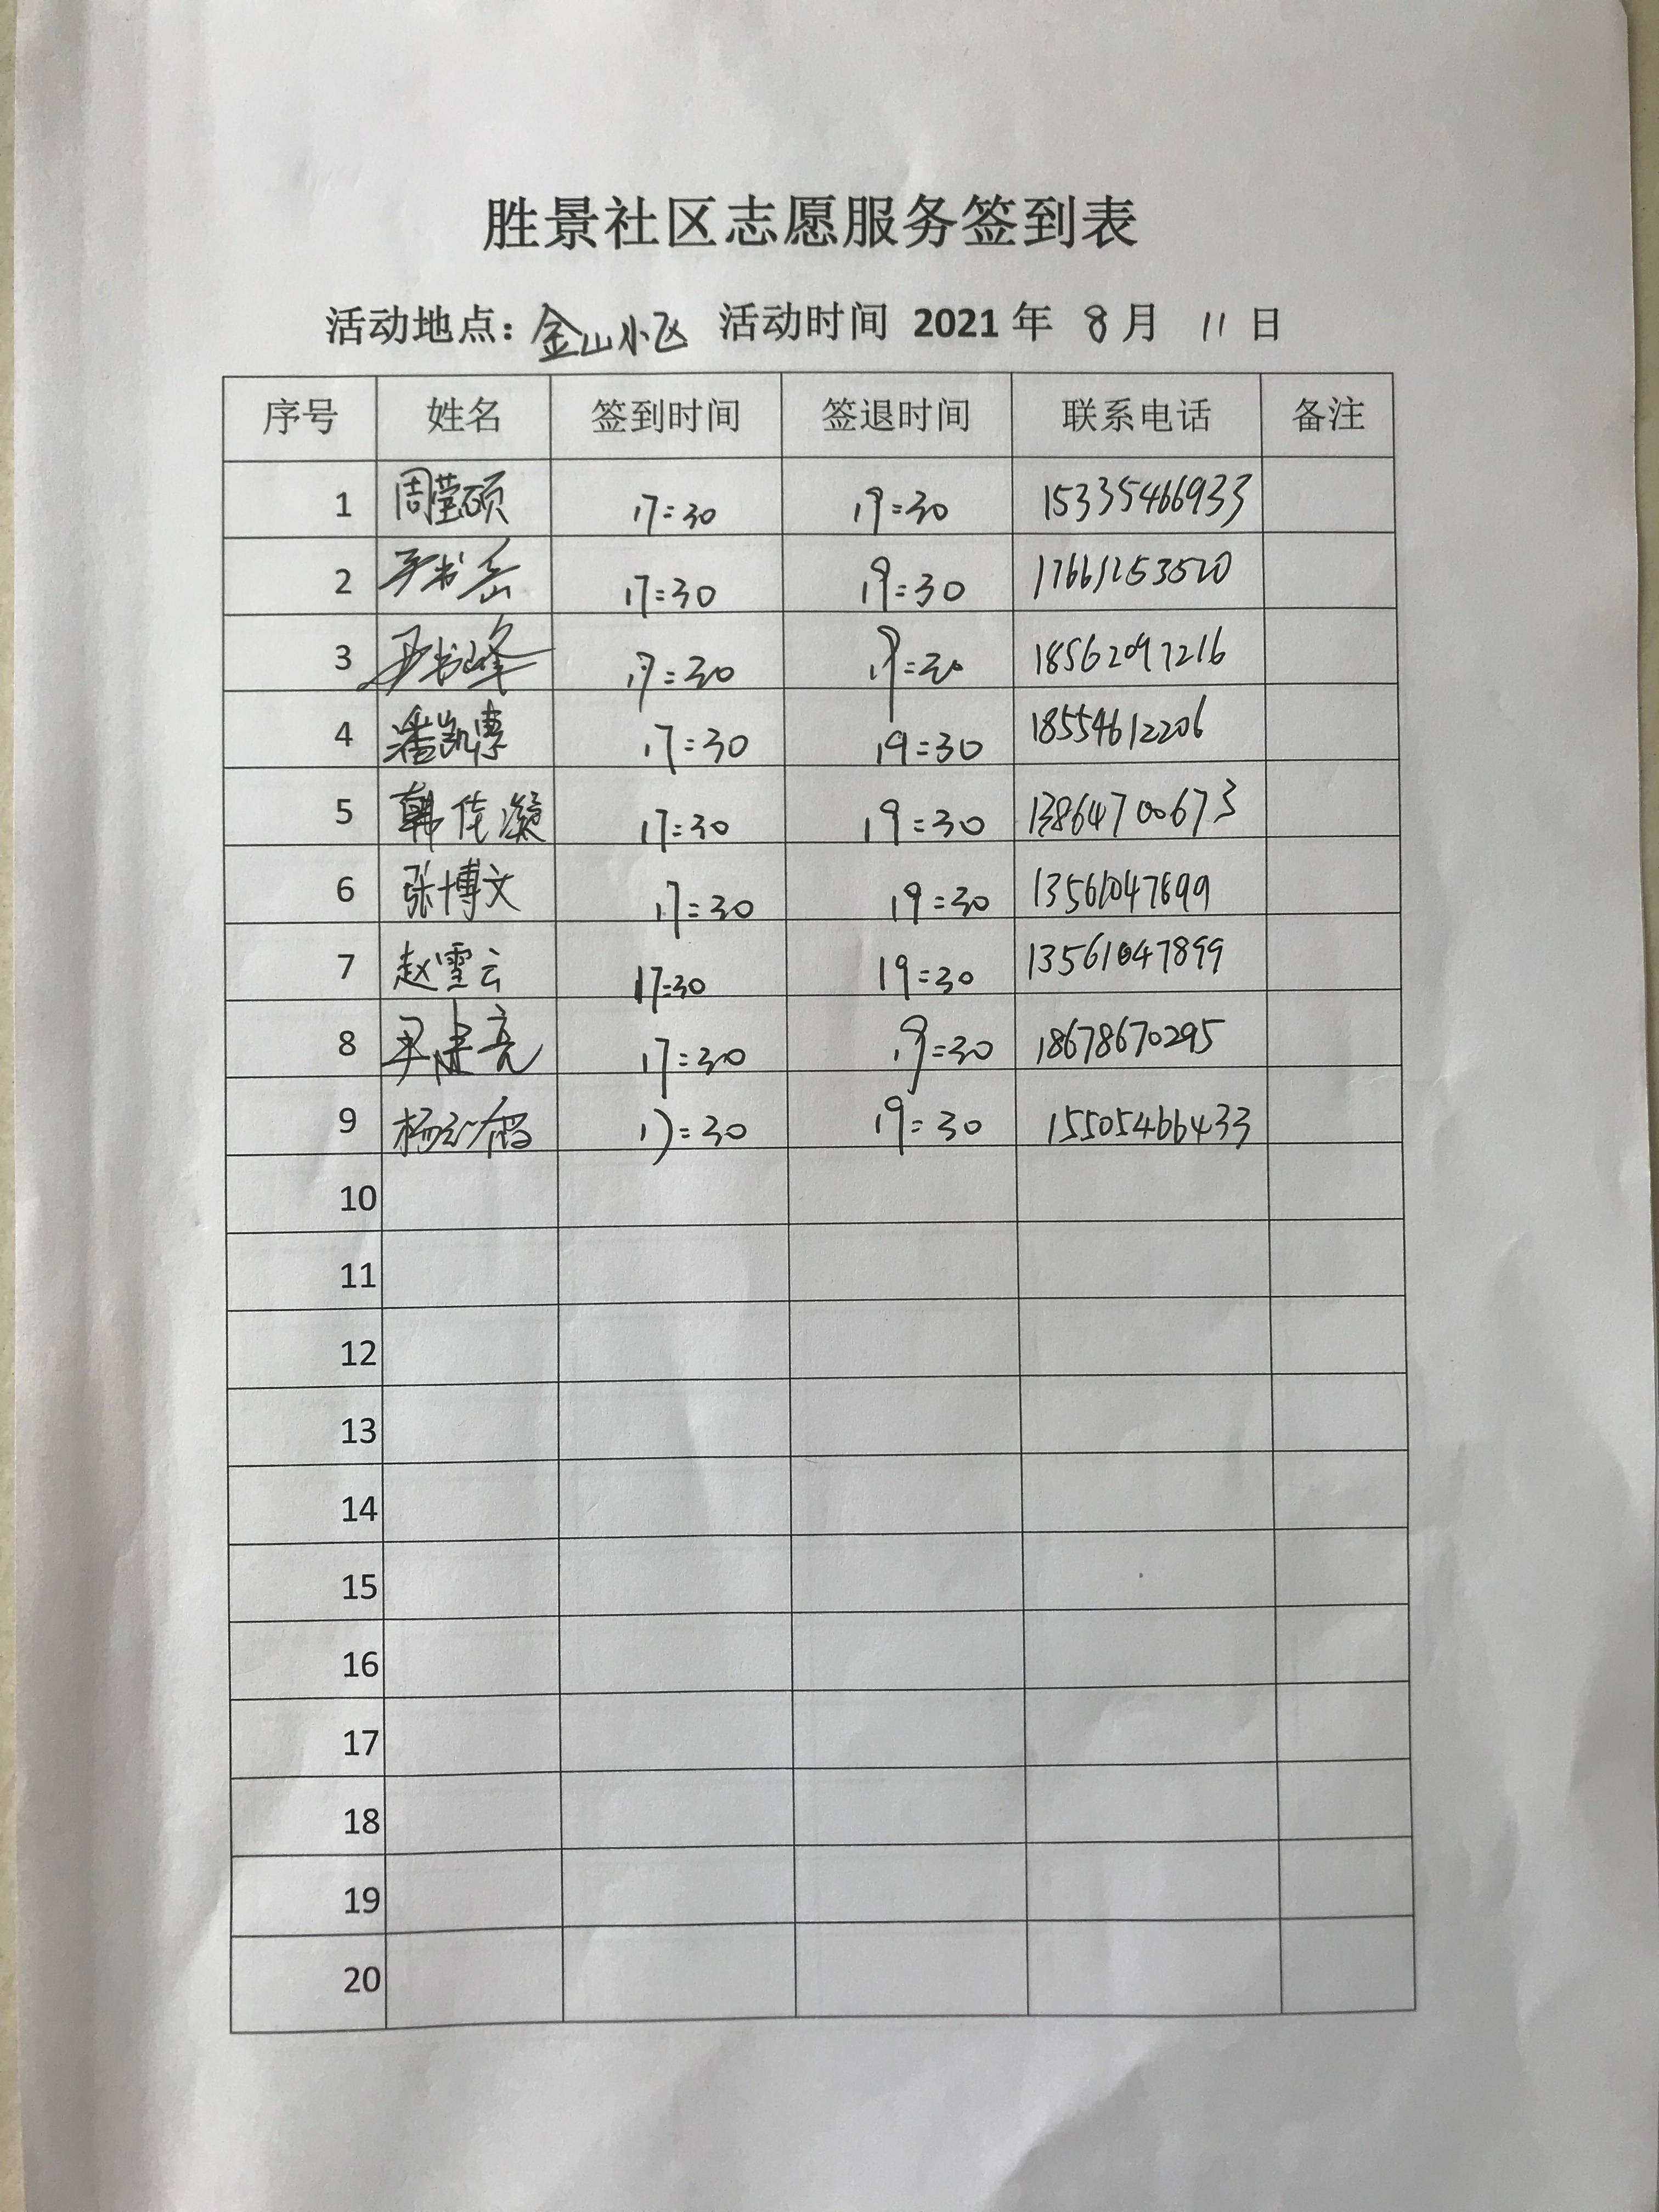 胜景社区志愿服务签到表
活动地点：金山小区 活动时间 2021 年 8 月 11 日
序号 姓名 签到时间 签退时间 联系电话 备注
1 周莹硕 17:30 19:30 15335466933
2 17:30 19:30
3 17:30 19:30 18562097216
4 17:30 19:30 18554612206
5 韩佳凝 17:30 19:30 13864700673
6 张博文 17:30 19:30 13561047899
7 赵雪云 17:30 19:30 13561047899
8 17:30 19:30 18678670295
9 17:30 19:30 15505466433
10
11
12
13
14
15
16
17
18
19
20